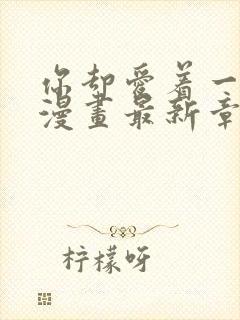 你却愛着一
漫畫最新章
柠檬呀